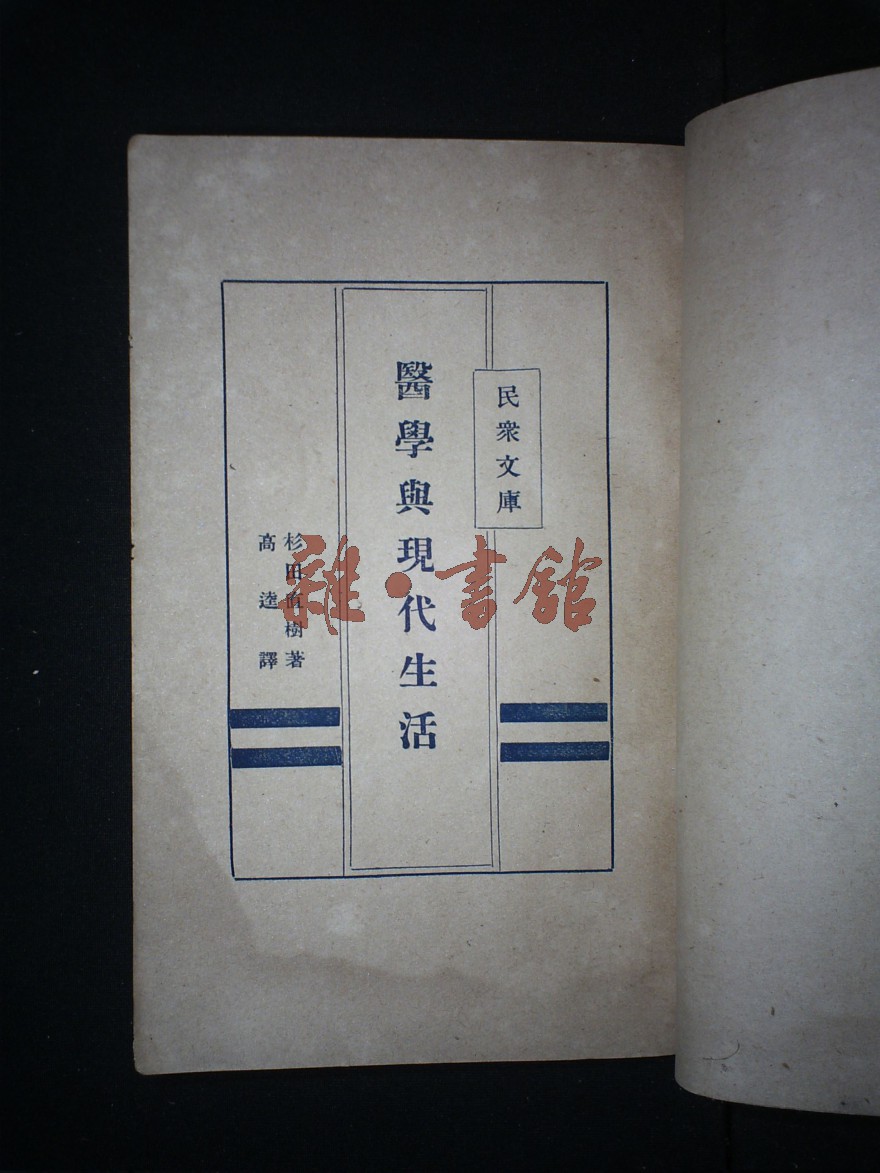 民衆文庫
醫學與現代生活
杉田直樹著
高逵譯
雜·書館